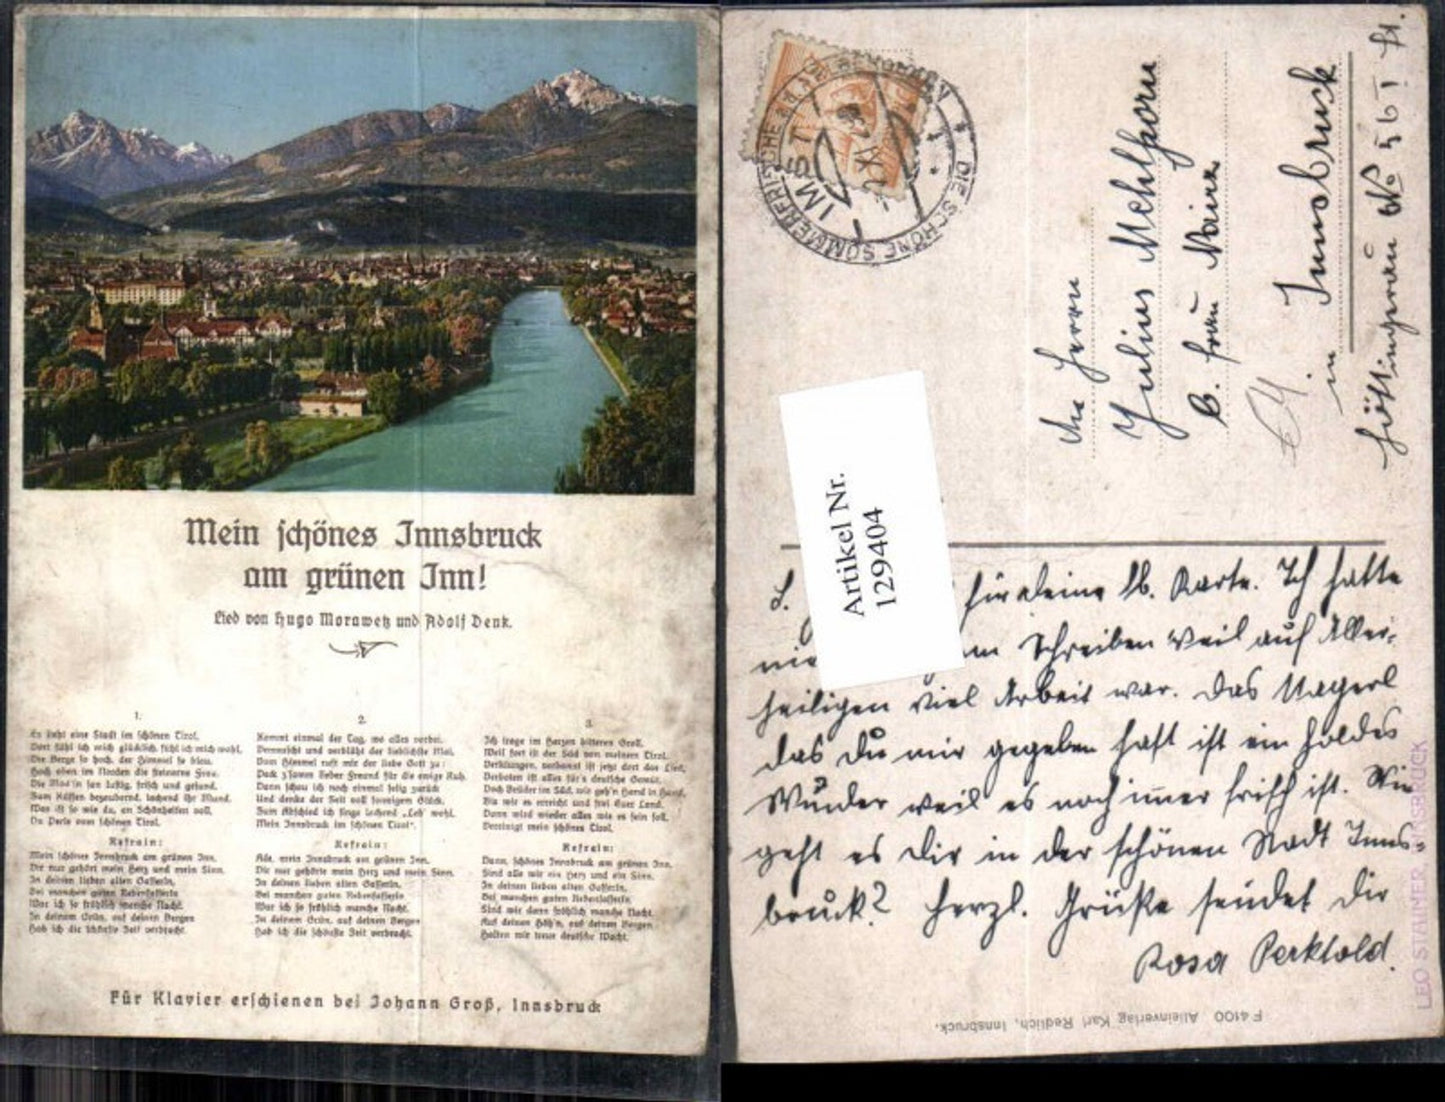 Mein schönes Innsbruck
am grünen Inn!
Lied von Hugo Morawetz und Adolf Denk.
1.
Es steht eine Stadt im schönen Tirol,
Dort fühl ich mich glücklich, fühl ich mich wohl,
Die Berge so hoch, der Himmel so blau,
Hoch oben im Norden die steinerne Frau.
Die Mad'ln san lustig, frisch und gesund,
Zum Küssen bezaubernd, lachend ihr Mund.
Was ist so wie du, an Schönheiten voll,
Du Perle vom schönen Tirol.
Refrain:
Mein schönes Innsbruck am grünen Inn,
Dir nur gehört mein Herz und mein Sinn.
In deinen lieben alten Gasserln,
Bei manchen guten Rebensafterln
War ich so fröhlich manche Nacht.
In deinem Grün, auf deinen Bergen
Hab ich die schönste Zeit verbracht.
2.
Kommt einmal der Tag, wo alles vorbei,
Verrauscht und verblüht der lieblichste Mai,
Vom Himmel ruft mir der liebe Gott zu:
Pack z'samm lieber Freund für die ewige Ruh.
Dann schau ich noch einmal selig zurück
Und denke der Zeit voll sonnigem Glück.
Zum Abschied ich singe lachend „Leb' wohl,
Mein Innsbruck im schönen Tirol".
Refrain:
Ade, mein Innsbruck am grünen Inn,
Dir nur gehörte mein Herz und mein Sinn.
In deinen lieben alten Gasserln,
Bei manchen guten Rebensafterln
War ich so fröhlich manche Nacht.
In deinem Grün, auf deinen Bergen
Hab ich die schönste Zeit verbracht.
3.
Ich trage im Herzen bitteren Groll,
Weil fort ist der Süd von meinem Tirol.
Verklungen, verbannt ist jetzt dort das Lied,
Verboten ist alles für's deutsche Gemüt.
Doch Brüder im Süd, wir geh'n Hand in Hand,
Bis wir es erreicht und frei Euer Land.
Dann wird wieder alles wie es sein soll,
Vereinigt mein schönes Tirol.
Refrain:
Dann, schönes Innsbruck am grünen Inn,
Sind alle wir ein Herz und ein Sinn.
In deinen lieben alten Gasserln,
Bei manchen guten Rebensafterln,
Sind wir dann fröhlich manche Nacht.
Auf deinen Höh'n, auf deinen Bergen
Halten wir treue deutsche Wacht.
Für Klavier erschienen bei Johann Groß, Innsbruck
IMST
DIE SCHÖNE SOMMERFRISCHE AN D. ARLBERG
An Herrn
Julius Mehlhorn
b. Frau Maira
in Innsbruck
Höttingerau No 56 I St.
Artikel Nr.
129404
für deine lb. Karte. Ich hatte
Schreiben weil auf Aller-
heiligen viel Arbeit war. Das Nagerl
das du mir gegeben hast ist ein holdes
Wunder weil es noch immer frisch ist. Wie
geht es Dir in der schönen Stadt Inns-
bruck? Herzl. Grüße sendet Dir
Rosa Perktold.
F 4100 Alleinverlag Karl Redlich, Innsbruck.
LEO STAINER, INNSBRUCK